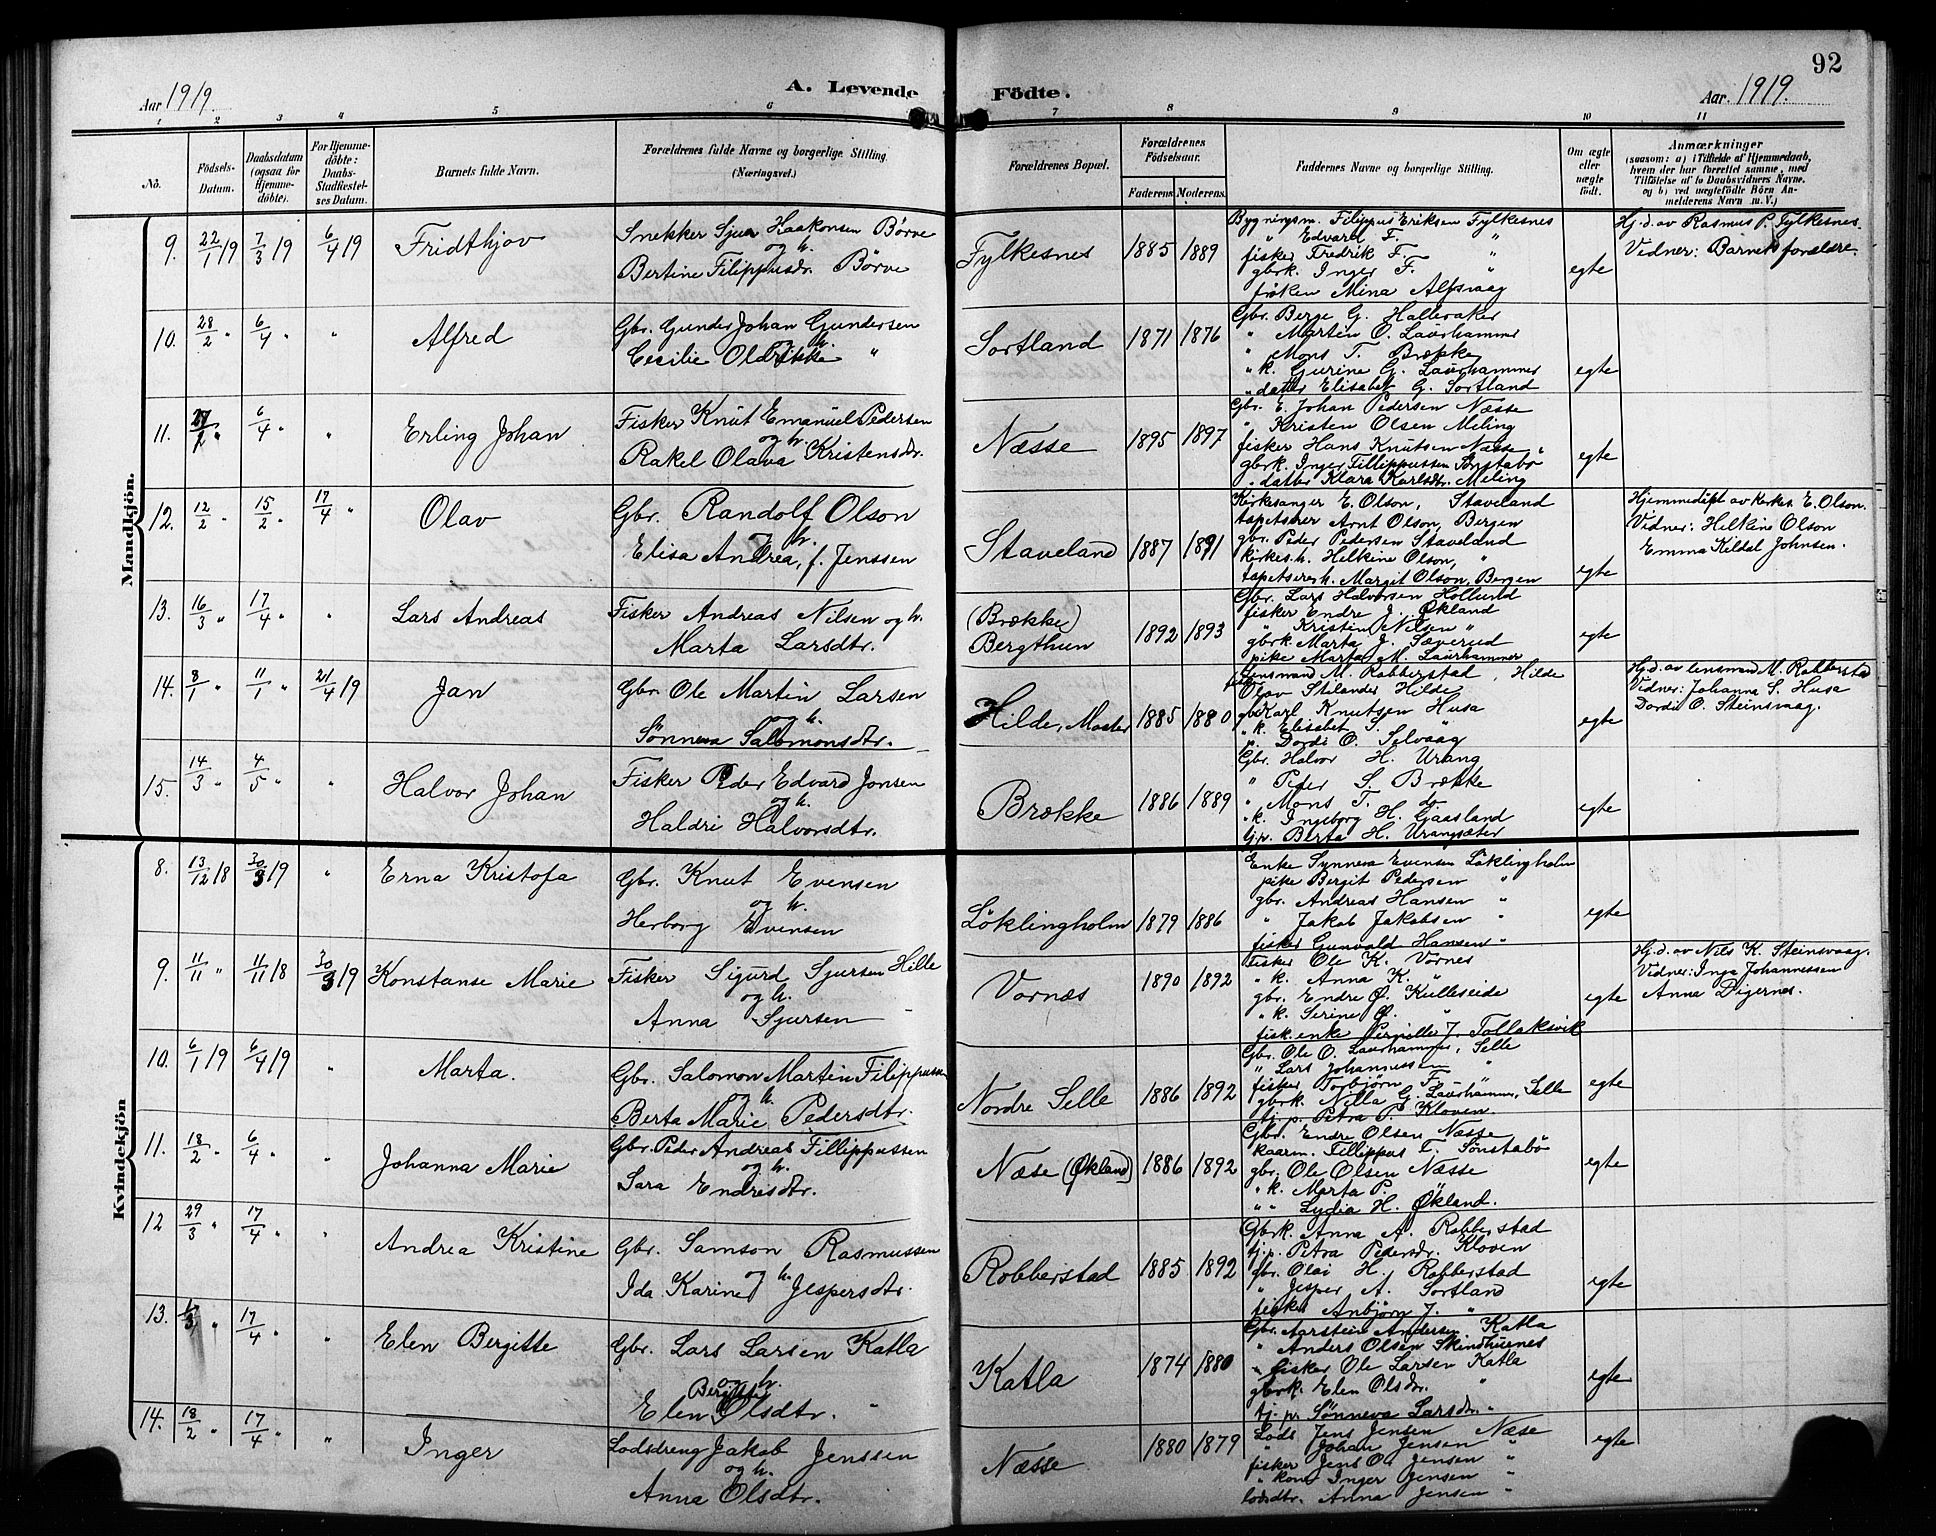 92
Aar 1919.
A. Levende Födte.
Aar. 1919.
1 2 3 4 5 6 7 8 9 10 11
No.
Födsels-Datum.
Daabsdatum (ogsaa for Hjemme-döbte).
For Hjemme-döbte: Daabs-Stadfæstel-ses Datum.
Barnets fulde Navn.
Forældrenes fulde Navne og borgerlige Stilling. (Næringsvei.)
Forældrenes Bopæl.
Forældrenes Födselsaar.
Faderens Moderens.
Faddernes Navne og borgerlige Stilling.
Om ægte eller uægte födt.
Anmærkninger
(saasom: a) i Tilfælde af Hjemmedaab, hvem der har forrettet samme, med Tilföielse af to Daabsvidners Navne, og b) ved uægtefödte Börn An-melderens Navn m. V.)
Mandkjön.
9. 22/1 19 7/3 19 6/4 19 Fridthjov
Snekker Sjur Haakonsen Børve
og h.
Bertine Filippusdr. Børve
Fylkesnes 1885 1889
Bygningsm. Filippus Eriksen Fylkesnes
" Edvard F. "
fisker Fredrik F. "
gbrk. Inger F. "
frøken Mina Alfsvaag
egte
Hj.d. av Rasmus P. Fylkesnes.
Vidner: Barnets forældre.
10. 28/2 " 6/4 " " Alfred
Gbr. Gunder Johan Gundersen
og h.
Cecilie Oldrikke "
Sortland 1871 1876
Gbr. Berge G. Halleraker
" Martin O. Laurhammer
" Mons T. Brække
" k. Gurine G. Laurhammer
" datter Elisabet G. Sortland
egte
11. " 6/4 " " Erling Johan
Fisker Knut Emanuel Pedersen
og h.
Rakel Olava Kristensdr.
Næsse 1895 1897
Gbr. E. Johan Pedersen Næsse
" Kristen Olsen Meling
fisker Hans Knutsen Næsse
gbrk. Inger Fillippussen Sønstabø
" datter Klara Karlsdtr. Meling
egte
12. 12/2 " 15/2 " 17/4 " Olav
Gbr. Randolf Olson
og h.
Elisa Andrea, f. Jenssen
Staveland 1887 1891
Kirkesanger E. Olson, Staveland
tapetserer Arnt Olson, Bergen
gbr. Peder Pedersen Staveland
kirkes.h. Helkine Olson, "
tapetsererh. Margit Olson, Bergen
egte
Hjemmedøpt av Kirkes. E. Olson.
Vidner: Helkine Olson
Emma Kildal Johnsen.
13. 16/3 " 17/4 " " Lars Andreas
Fisker Andreas Nilsen og h.
Marta Larsdtr.
(Brække) Bergthun 1892 1893
Gbr. Lars Halvorsen Hollund
fisker Endre J. Økland
" Kristen Nilsen "
gbrk. Marta J. Sæverud
pike Marta M. Laurhammer
egte
14. 8/1 " 11/1 " 21/4 19 Jan
Gbr. Ole Martin Larsen
og h.
Sønneva Salomonsdtr.
Hilde, Moster 1885 1880
Lensmand M. Robberstad, Hilde
Olav Stilander Hilde
gbr Karl Knutsen Husa
" k. Elisabet S. "
p. Dordi O. Selvaag
egte
Hj.d. av lensmand M. Robberstad
Vidner: Johanna S. Husa
Dordi O. Steinsvaag.
15. 14/3 " 4/5 " " Halvor Johan
Fisker Peder Edvard Jonsen
og h.
Haldri Halvorsdtr.
Brække 1886 1889
Gbr. Halvor H. Urang
" Peder S. Brække
" Mons T. do
" k. Ingeborg H. Gaasland
tj.p. Berta H. Urangsæter
egte
Kvindekjön
8. 13/12 18 30/3 19 " Erna Kristofa
Gbr. Knut Evensen
og h.
Herborg Evensen
Løklingholm 1879 1886
Enke Synneva Evensen Løklingholm
pike Bergit Pedersen "
gbr. Andreas Hansen "
" Jakob Jakobsen "
fisker Gunvald Hansen "
egte
9. 11/11 " 11/11 18 30/3 19 Konstanse Marie
Fisker Sigurd Sjursen Hille
og h.
Anna Sjursen "
Vornæs 1890 1892
Fisker Ole K. Vornes
" k. Anna K. "
gbr. Endre Ø. Kulleseide
" k. Serine Ø. "
fisk.enke Pernille J. Tollaksvik
egte
Hj.d. av Nils K. Steinsvaag.
Vidner: Inga Johannessen
Anna Digernes.
10. 6/1 19 6/4 19 " Marta.
Gbr. Salomon Martin Filippussen
og h.
Berta Marie Pedersdtr.
Nordre Selle 1886 1892
Gbr. Ole O. Laurhammer, Selle
" Lars Johannessen "
fisker Torbjørn F. "
gbrk. Nilla G. Laurhammer, Selle
tj.p. Petra P. Kloven.
egte
11. 18/2 " 6/4 " " Johanna Marie
Gbr. Peder Andreas Fillippussen
og h.
Sara Endresdtr.
Næse (Økland) 1886 1892
Gbr. Endre Olsen Næsse
kaarm. Fillippus E. Sønstabø
gbr. Ole Olsen Næsse
" k. Marta P. "
" " Lydia H. Økland.
egte
12 29/3 " 17/4 " " Andrea Kristine
Gbr. Samson Rasmussen
og h.
Ida Karine Jespersdtr.
Robberstad 1885 1892
Gbrk. Anna A. Robberstad
tj.p. Petra Pedersdr. Kloven
gbr. Olai H. Robberstad
" Jesper A. Sortland
fisker Anbjørn J. "
egte
13. " 17/4 " " Elen Bergitte
Gbr. Lars Larsen Katla
og h.
Bergitte
Elen Olsdtr. "
Katla 1874 1880
Gbr. Aarstein Andersen Katla
" Anders Olsen Skindhusnes
" fisker Ole Larsen Katla
gbrk. Elen Olsdr. "
tj. pr Sønneva Larsdtr. "
egte
14. 18/2 " 17/4 " " Inger
Lodsdreng Jakob Jenssen
og h.
Anna Olsdtr.
Næsse 1880 1879
Lods Jens Jensen Næse
" Johan Jensen "
fisker Jens O. Jensen "
" kone Inger Jensen "
lodsdtr. Anna Jensen "
egte